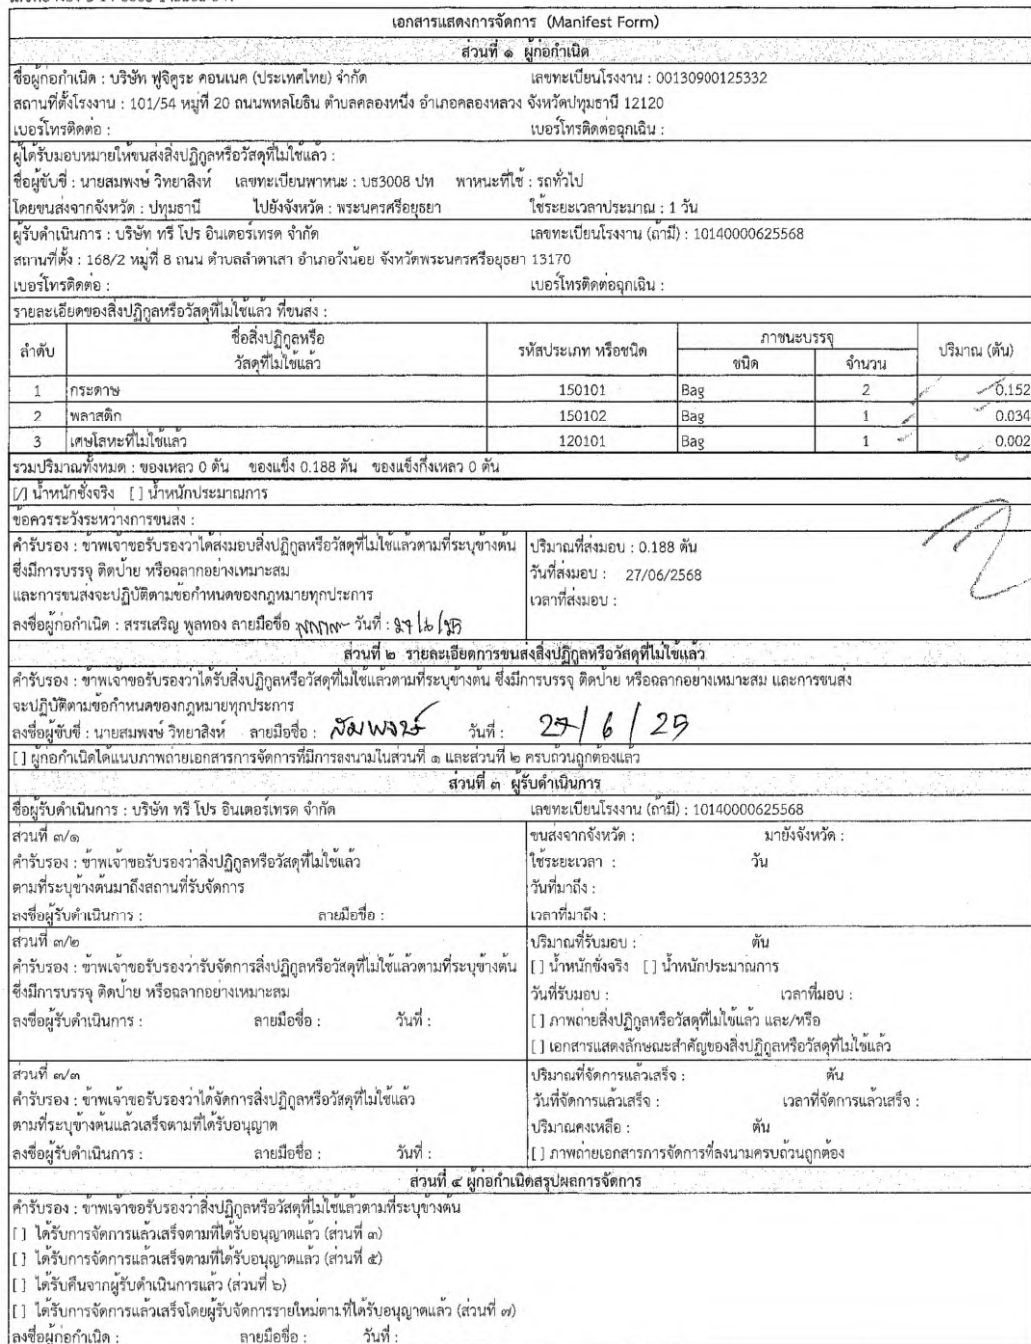 เอกสารแสดงการจัดการ (Manifest Form)
ส่วนที่ ๑ ผู้ก่อกำเนิด
ชื่อผู้ก่อกำเนิด : บริษัท ฟูจิคูระ คอนเนค (ประเทศไทย) จำกัด เลขทะเบียนโรงงาน : 00130900125332
สถานที่ตั้งโรงงาน : 101/54 หมู่ที่ 20 ถนนพหลโยธิน ตำบลคลองหนึ่ง อำเภอคลองหลวง จังหวัดปทุมธานี 12120
เบอร์โทรติดต่อ : เบอร์โทรติดต่อฉุกเฉิน :
ผู้ได้รับมอบหมายให้ขนส่งสิ่งปฏิกูลหรือวัสดุที่ไม่ใช้แล้ว :
ชื่อผู้ขับขี่ : นายสมพงษ์ วิทยาสิงห์ เลขทะเบียนพาหนะ : บธ3008 ปท พาหนะที่ใช้ : รถทั่วไป
โดยขนส่งจากจังหวัด : ปทุมธานี ไปยังจังหวัด : พระนครศรีอยุธยา ใช้ระยะเวลาประมาณ : 1 วัน
ผู้รับดำเนินการ : บริษัท ทรี โปร อินเตอร์เทรด จำกัด เลขทะเบียนโรงงาน (ถ้ามี) : 10140000625568
สถานที่ตั้ง : 168/2 หมู่ที่ 8 ถนน ตำบลลำตาเสา อำเภอวังน้อย จังหวัดพระนครศรีอยุธยา 13170
เบอร์โทรติดต่อ : เบอร์โทรติดต่อฉุกเฉิน :
รายละเอียดของสิ่งปฏิกูลหรือวัสดุที่ไม่ใช้แล้ว ที่ขนส่ง :
ลำดับ ชื่อสิ่งปฏิกูลหรือ วัสดุที่ไม่ใช้แล้ว รหัสประเภท หรือชนิด ภาชนะบรรจุ ชนิด จำนวน ปริมาณ (ตัน)
1 กระดาษ 150101 Bag 2 0.152
2 พลาสติก 150102 Bag 1 0.034
3 เศษโลหะที่ไม่ใช้แล้ว 120101 Bag 1 0.002
รวมปริมาณทั้งหมด : ของเหลว 0 ตัน ของแข็ง 0.188 ตัน ของแข็งกึ่งเหลว 0 ตัน
[/] น้ำหนักชั่งจริง [ ] น้ำหนักประมาณการ
ข้อควรระวังระหว่างการขนส่ง :
คำรับรอง : ข้าพเจ้าขอรับรองว่าได้ส่งมอบสิ่งปฏิกูลหรือวัสดุที่ไม่ใช้แล้วตามที่ระบุข้างต้น ปริมาณที่ส่งมอบ : 0.188 ตัน
ซึ่งมีการบรรจุ ติดป้าย หรือฉลากอย่างเหมาะสม วันที่ส่งมอบ : 27/06/2568
และการขนส่งจะปฏิบัติตามข้อกำหนดของกฎหมายทุกประการ เวลาที่ส่งมอบ :
ลงชื่อผู้ก่อกำเนิด : สรรเสริญ พูลทอง ลายมือชื่อ วันที่ : 27/6/25
ส่วนที่ ๒ รายละเอียดการขนส่งสิ่งปฏิกูลหรือวัสดุที่ไม่ใช้แล้ว
คำรับรอง : ข้าพเจ้าขอรับรองว่าได้รับสิ่งปฏิกูลหรือวัสดุที่ไม่ใช้แล้วตามที่ระบุข้างต้น ซึ่งมีการบรรจุ ติดป้าย หรือฉลากอย่างเหมาะสม และการขนส่ง
จะปฏิบัติตามข้อกำหนดของกฎหมายทุกประการ
ลงชื่อผู้ขับขี่ : นายสมพงษ์ วิทยาสิงห์ ลายมือชื่อ : สมพงษ์ วันที่ : 27/6/25
[ ] ผู้ก่อกำเนิดได้แนบภาพถ่ายเอกสารการจัดการที่มีการลงนามในส่วนที่ ๑ และส่วนที่ ๒ ครบถ้วนถูกต้องแล้ว
ส่วนที่ ๓ ผู้รับดำเนินการ
ชื่อผู้รับดำเนินการ : บริษัท ทรี โปร อินเตอร์เทรด จำกัด เลขทะเบียนโรงงาน (ถ้ามี) : 10140000625568
ส่วนที่ ๓/๑ ขนส่งจากจังหวัด : มายังจังหวัด :
คำรับรอง : ข้าพเจ้าขอรับรองว่าสิ่งปฏิกูลหรือวัสดุที่ไม่ใช้แล้ว ใช้ระยะเวลา : วัน
ตามที่ระบุข้างต้นมาถึงสถานที่รับจัดการ วันที่มาถึง :
ลงชื่อผู้รับดำเนินการ : ลายมือชื่อ : เวลาที่มาถึง :
ส่วนที่ ๓/๒ ปริมาณที่รับมอบ : ตัน
คำรับรอง : ข้าพเจ้าขอรับรองว่ารับจัดการสิ่งปฏิกูลหรือวัสดุที่ไม่ใช้แล้วตามที่ระบุข้างต้น [ ] น้ำหนักชั่งจริง [ ] น้ำหนักประมาณการ
ซึ่งมีการบรรจุ ติดป้าย หรือฉลากอย่างเหมาะสม วันที่รับมอบ : เวลาที่มอบ :
ลงชื่อผู้รับดำเนินการ : ลายมือชื่อ : วันที่ : [ ] ภาพถ่ายสิ่งปฏิกูลหรือวัสดุที่ไม่ใช้แล้ว และ/หรือ
[ ] เอกสารแสดงลักษณะสำคัญของสิ่งปฏิกูลหรือวัสดุที่ไม่ใช้แล้ว
ส่วนที่ ๓/๓ ปริมาณที่จัดการแล้วเสร็จ : ตัน
คำรับรอง : ข้าพเจ้าขอรับรองว่าได้จัดการสิ่งปฏิกูลหรือวัสดุที่ไม่ใช้แล้ว วันที่จัดการแล้วเสร็จ : เวลาที่จัดการแล้วเสร็จ :
ตามที่ระบุข้างต้นแล้วเสร็จตามที่ได้รับอนุญาต ปริมาณคงเหลือ : ตัน
ลงชื่อผู้รับดำเนินการ : ลายมือชื่อ : วันที่ : [ ] ภาพถ่ายเอกสารการจัดการที่ลงนามครบถ้วนถูกต้อง
ส่วนที่ ๔ ผู้ก่อกำเนิดสรุปผลการจัดการ
คำรับรอง : ข้าพเจ้าขอรับรองว่าสิ่งปฏิกูลหรือวัสดุที่ไม่ใช้แล้วตามที่ระบุข้างต้น
[ ] ได้รับการจัดการแล้วเสร็จตามที่ได้รับอนุญาตแล้ว (ส่วนที่ ๓)
[ ] ได้รับการจัดการแล้วเสร็จตามที่ได้รับอนุญาตแล้ว (ส่วนที่ ๕)
[ ] ได้รับคืนจากผู้รับดำเนินการแล้ว (ส่วนที่ ๖)
[ ] ได้รับการจัดการแล้วเสร็จโดยผู้รับจัดการรายใหม่ตามที่ได้รับอนุญาตแล้ว (ส่วนที่ ๗)
ลงชื่อผู้ก่อกำเนิด : ลายมือชื่อ : วันที่ :